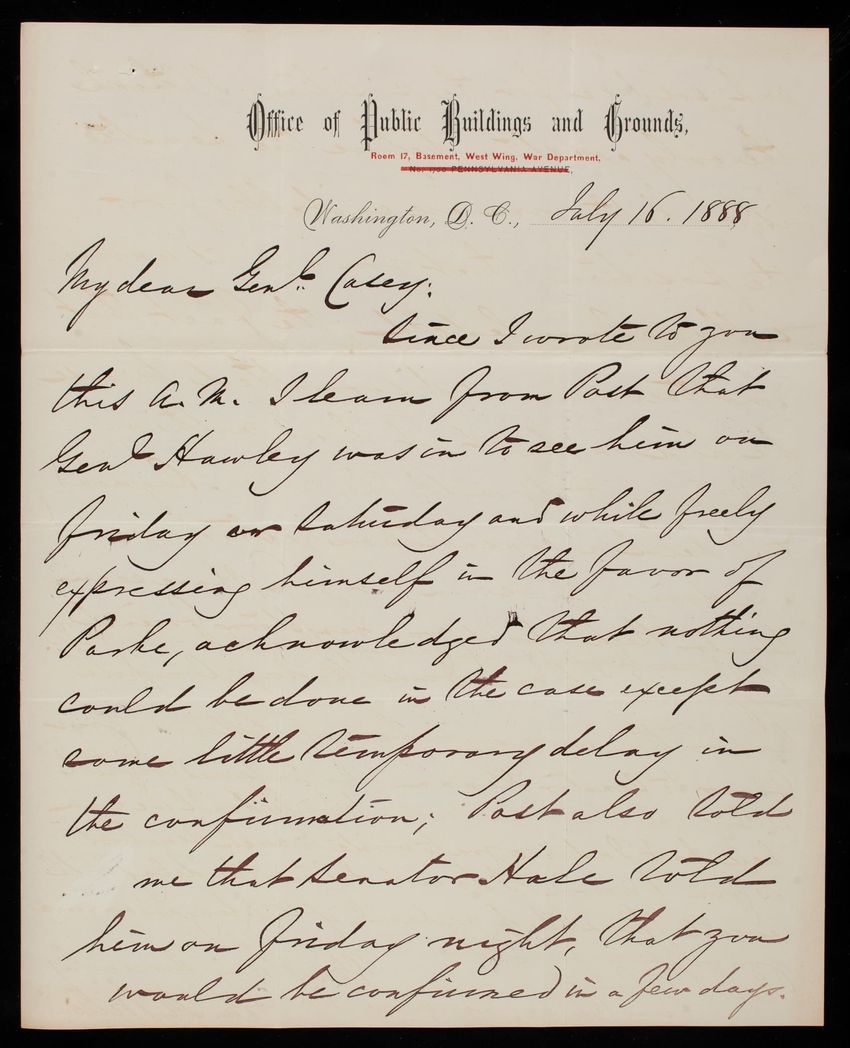 Office of Public Buildings and Grounds,
Room 17, Basement, West Wing, War Department,
No. 1700 PENNSYLVANIA AVENUE,
Washington, D. C., July 16. 1888
My dear Genl. Casey:
Since I wrote to you
this A. M. I learn from Post that
Genl Hawley was in to see him on
Friday or Saturday and while freely
expressing himself in the favor of
Parke, acknowledged that nothing
could be done in the case except
some little temporary delay in
the confirmation; Post also told
me that Senator Hale told
him on Friday night, that you
would be confirmed in a few days.